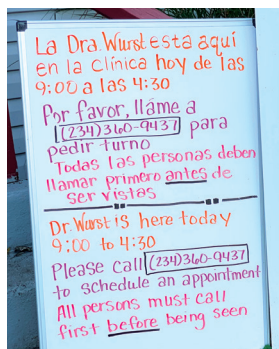 La Dra. Wurst esta aquí
en la clínica hoy de las
9:00 a las 4:30
Por favor, lláme a
(234)360-9437 para
pedir turno
Todas las personas deben
llamar primero antes de
ser vistas
Dr. Wurst is here today
9:00 to 4:30
Please call (234)360-9437
to schedule an appointment
All persons must call
first before being seen